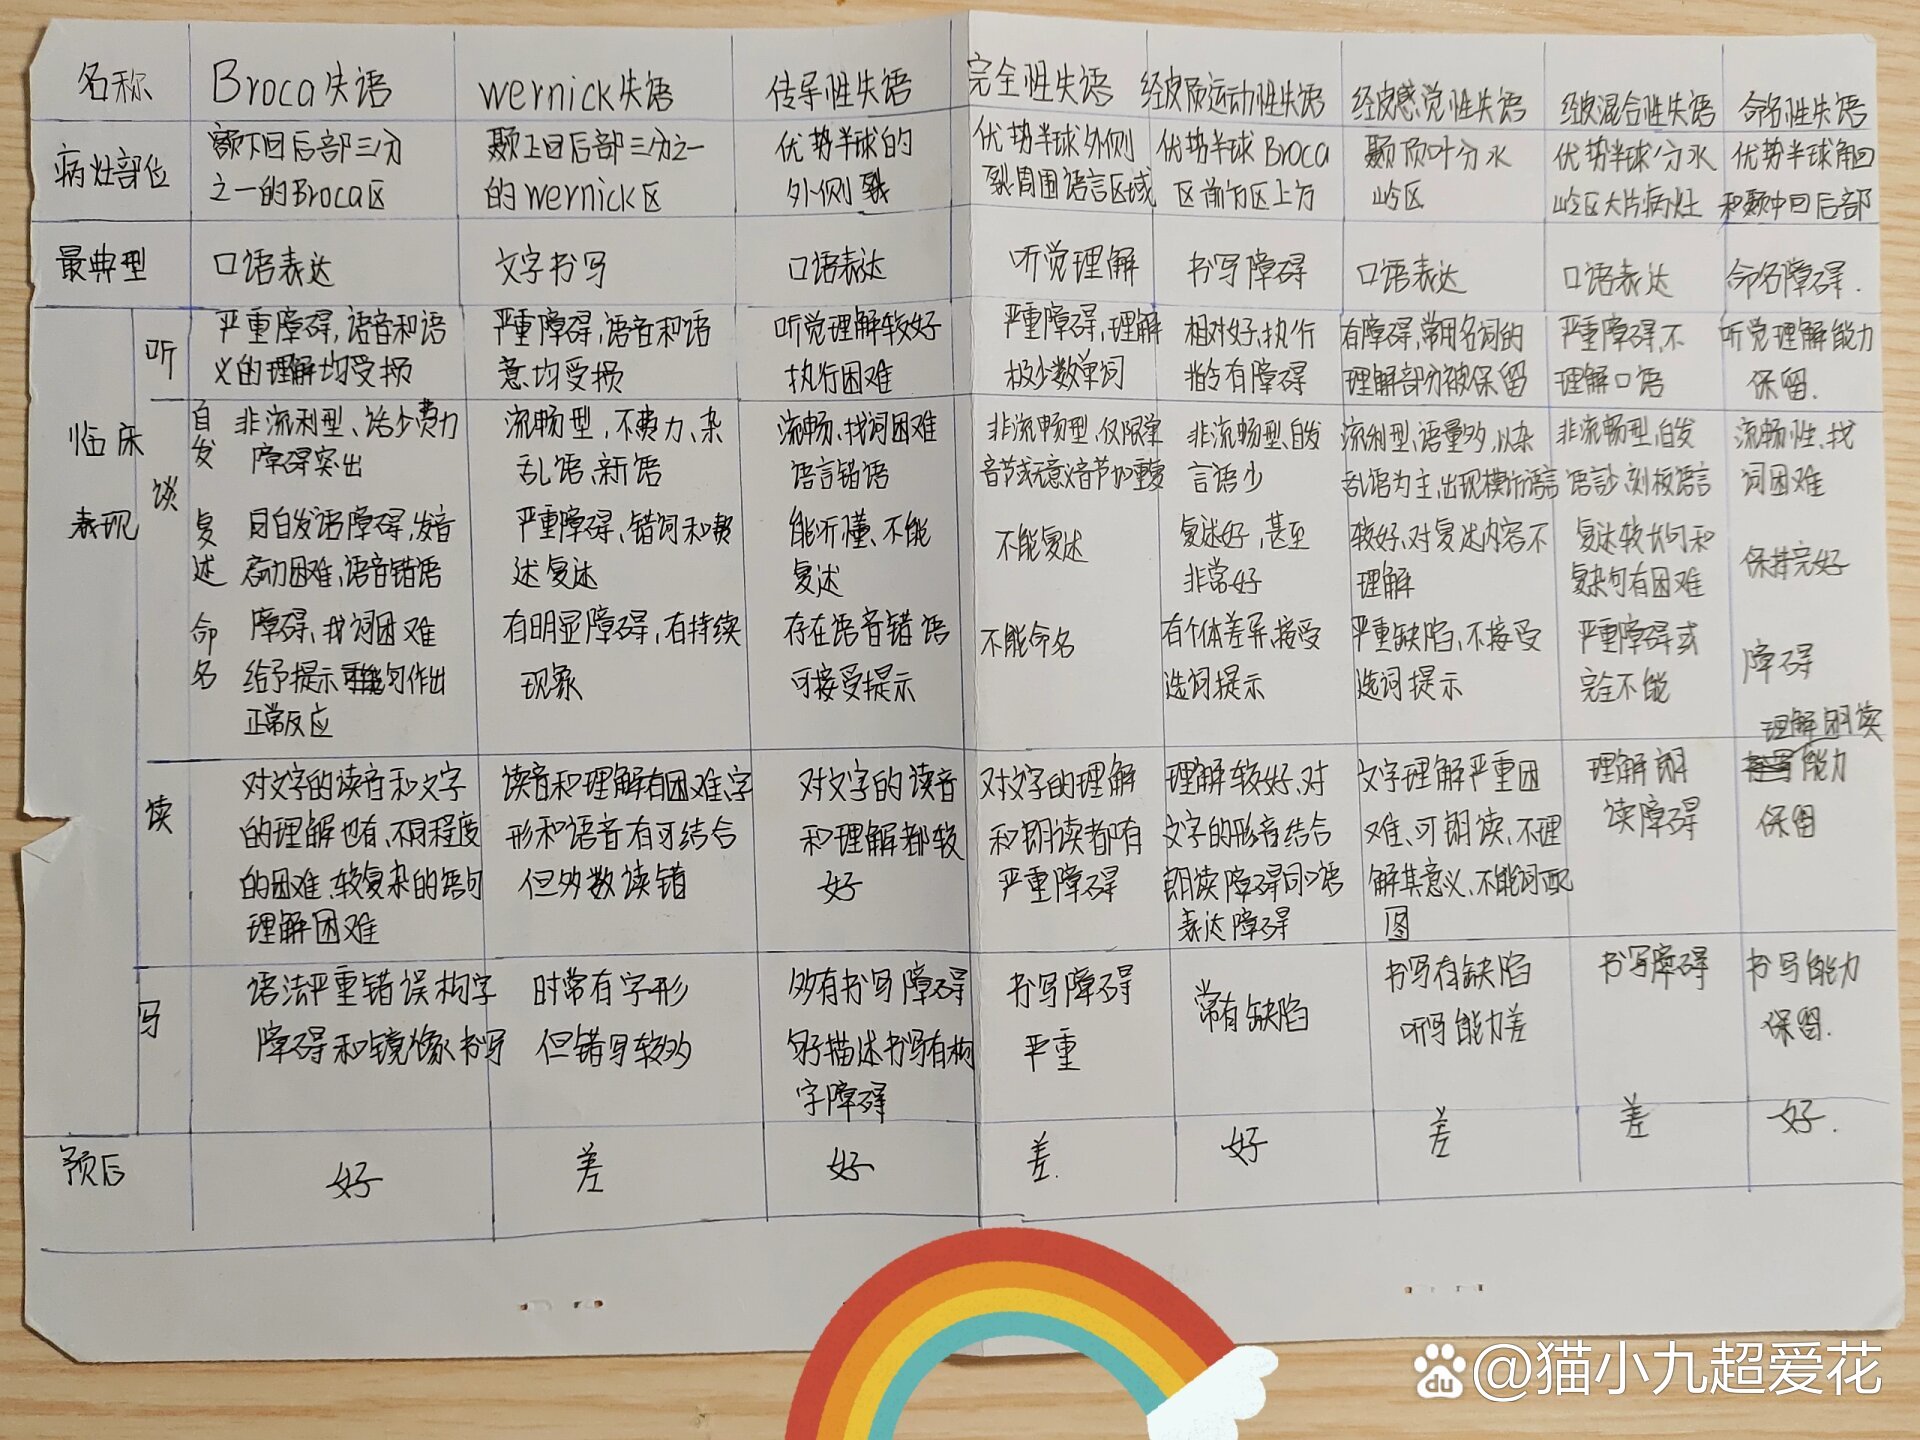 名称 Broca失语 wernick失语 传导性失语 完全性失语 经皮质运动性失语 经皮感觉性失语 经皮混合性失语 命名性失语
病灶部位
额下回后部三分
之一的Broca区
颞上回后部三分之一
的wernick区
优势半球的
外侧裂
优势半球外侧
裂周围语言区域
优势半球Broca
区前方区上方
颞顶叶分水
岭区
优势半球分水
岭区大片病灶
优势半球角回
和颞中回后部
最典型 口语表达 文字书写 口语表达 听觉理解 书写障碍 口语表达 口语表达 命名障碍.
临床
表现
听
严重障碍,语音和语
义的理解均受损
严重障碍,语音和语
意均受损
听觉理解较好
执行困难
严重障碍,理解
极少数单词
相对好,执行
指令有障碍
有障碍,常用名词的
理解部分被保留
严重障碍,不
理解口语
听觉理解能力
保留.
谈
自发
非流利型、语少费力
障碍突出
流畅型,不费力、杂
乱语、新语
流畅、找词困难
语言错语
非流畅型,仅限单
音节或无意义音节如重复
非流畅型、自发
言语少
流利型、语量多,以杂
乱语为主,出现模仿语言
非流畅型,自发
语言少、刻板语言
流畅性、找
词困难
复述
同自发语障碍,发音
启动困难,语音错语
严重障碍、错词和赘
述复述
能听懂、不能
复述
不能复述
复述好,甚至
非常好
较好、对复述内容不
理解
复述较长句和
复杂句有困难
保持完好
命名
障碍、找词困难
给予提示可能句作出
正常反应
有明显障碍,有持续
现象
存在语音错语
可接受提示
不能命名
有个体差异,接受
选词提示
严重缺陷,不接受
选词提示
严重障碍或
完全不能
障碍
读
对文字的读音和文字
的理解也有、不同程度
的困难、较复杂的语句
理解困难
读音和理解有困难,字
形和语音有可结合
但多数读错
对文字的读音
和理解都较
好
对文字的理解
和朗读都有
严重障碍
理解较好、对
文字的形音结合
朗读障碍同口语
表达障碍
文字理解严重困
难、可朗读、不理
解其意义、不能词配
图
理解朗
读障碍
理解朗读
能力
保留
写
语法严重错误构字
障碍和镜像书写
时常有字形
但错写较多
多有书写障碍
句子描述书写有构
字障碍
书写障碍
严重
常有缺陷
书写有缺陷
听写能力差
书写障碍
书写能力
保留.
预后 好 差 好 差. 好 差 差 好.
du @猫小九超爱花